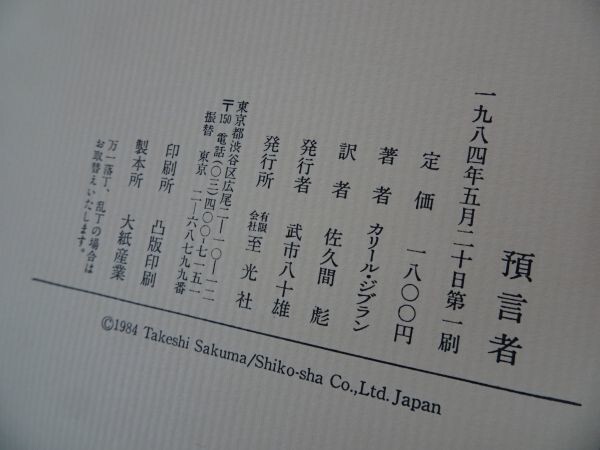 預言者
一九八四年五月二十日第一刷
定価 一八〇〇円
著者 カリール・ジブラン
訳者 佐久間 彪
発行者 武市八十雄
発行所 有限会社 至光社
東京都渋谷区広尾二—一〇—一二
〒150 電話(〇三)四〇〇—七一五一
振替 東京 一—六八七九九番
印刷所 凸版印刷
製本所 大紙産業
万一落丁、乱丁の場合は
お取替えいたします。
©1984 Takeshi Sakuma/Shiko-sha Co.,Ltd. Japan